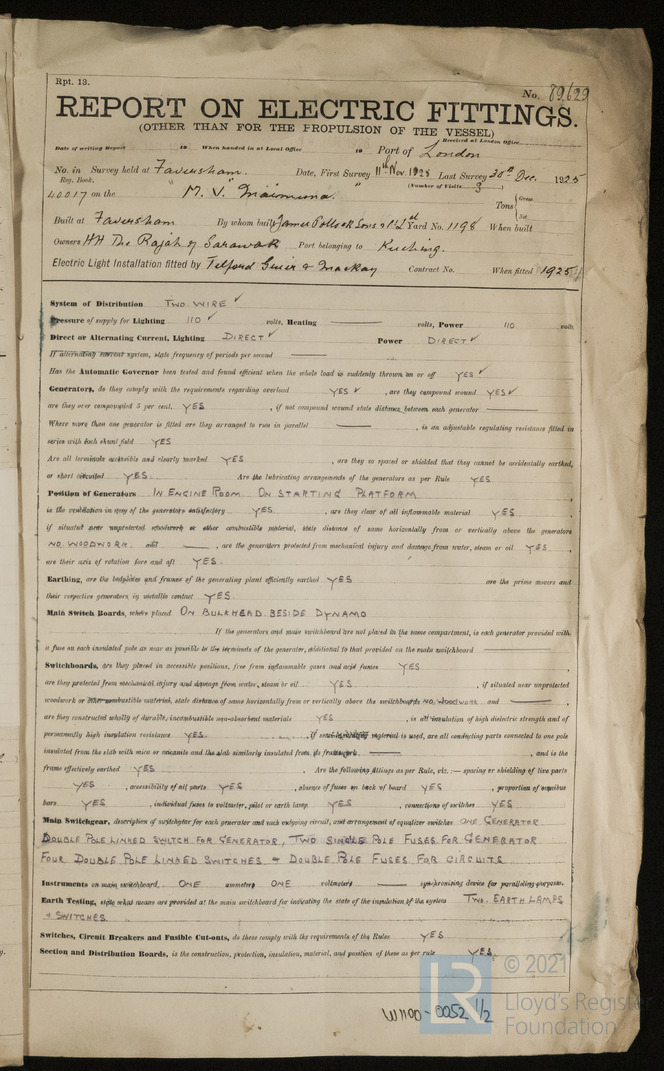 Rpt. 13.
No. 89,629
REPORT ON ELECTRIC FITTINGS.
(OTHER THAN FOR THE PROPULSION OF THE VESSEL)
Received at London Office
Date of writing Report 19 When handed in at Local Office 19 Port of London
No. in Survey held at Faversham. Date, First Survey 11th Nov. 1925 Last Survey 30th Dec. 1925
Reg. Book. (Number of Visits 3)
40017 on the "M.V." Maimuna " Tons { Gross
Net
Built at Faversham By whom built James Pollock Sons & Co Ld Yard No. 1198 When built
Owners HH The Rajah of Sarawak Port belonging to Kuching.
Electric Light Installation fitted by Telford Grier & Mackay Contract No. When fitted 1925
System of Distribution TWO. WIRE ✓
Pressure of supply for Lighting 110 ✓ volts, Heating volts, Power 110 volts.
Direct or Alternating Current, Lighting DIRECT ✓ Power DIRECT ✓
If alternating current system, state frequency of periods per second
Has the Automatic Governor been tested and found efficient when the whole load is suddenly thrown on or off YES ✓
Generators, do they comply with the requirements regarding overload YES ✓ , are they compound wound YES ✓
are they over compounded 5 per cent. YES , if not compound wound state distance between each generator
Where more than one generator is fitted are they arranged to run in parallel , is an adjustable regulating resistance fitted in
series with each shunt field YES
Are all terminals accessible and clearly marked YES , are they so spaced or shielded that they cannot be accidentally earthed,
or short circuited YES. Are the lubricating arrangements of the generators as per Rule YES
Position of Generators IN ENGINE ROOM ON STARTING PLATFORM
is the ventilation in way of the generators satisfactory YES. , are they clear of all inflammable material YES.
if situated near unprotected woodwork or other combustible material, state distance of same horizontally from or vertically above the generators
NO. WOODWORK. and , are the generators protected from mechanical injury and damage from water, steam or oil YES.
are their axis of rotation fore and aft YES.
Earthing, are the bedplates and frames of the generating plant efficiently earthed YES are the prime movers and
their respective generators in metallic contact YES.
Main Switch Boards, where placed ON BULKHEAD. BESIDE DYNAMO
If the generators and main switchboard are not placed in the same compartment, is each generator provided with
a fuse on each insulated pole as near as possible to the terminals of the generator, additional to that provided on the main switchboard
Switchboards, are they placed in accessible positions, free from inflammable gases and acid fumes YES
are they protected from mechanical injury and damage from water, steam or oil YES , if situated near unprotected
woodwork or other combustible material, state distance of same horizontally from or vertically above the switchboards NO. WOODWORK and
are they constructed wholly of durable, incombustible non-absorbent materials YES , is all insulation of high dielectric strength and of
permanently high insulation resistance YES. , if semi-insulating material is used, are all conducting parts connected to one pole
insulated from the slab with mica or micanite and the slab similarly insulated from its framework , and is the
frame effectively earthed YES . Are the following fittings as per Rule, viz.:— spacing or shielding of live parts
YES , accessibility of all parts YES , absence of fuses on back of board YES , proportion of omnibus
bars YES , individual fuses to voltmeter, pilot or earth lamp YES , connections of switches YES
Main Switchgear, description of switchgear for each generator and each outgoing circuit, and arrangement of equalizer switches ONE GENERATOR
DOUBLE POLE LINKED SWITCH FOR GENERATOR, TWO SINGLE POLE FUSES FOR GENERATOR
FOUR DOUBLE POLE LINKED SWITCHES & DOUBLE POLE FUSES FOR CIRCUITS
Instruments on main switchboard, ONE ammeters ONE voltmeters synchronising device for paralleling purposes.
Earth Testing, state what means are provided at the main switchboard for indicating the state of the insulation of the system TWO. EARTH LAMPS
& SWITCHES
Switches, Circuit Breakers and Fusible Cut-outs, do these comply with the requirements of the Rules YES
Section and Distribution Boards, is the construction, protection, insulation, material, and position of these as per rule YES.
© 2021
LR
Lloyd's Register
Foundation
W1100-0052 1/2